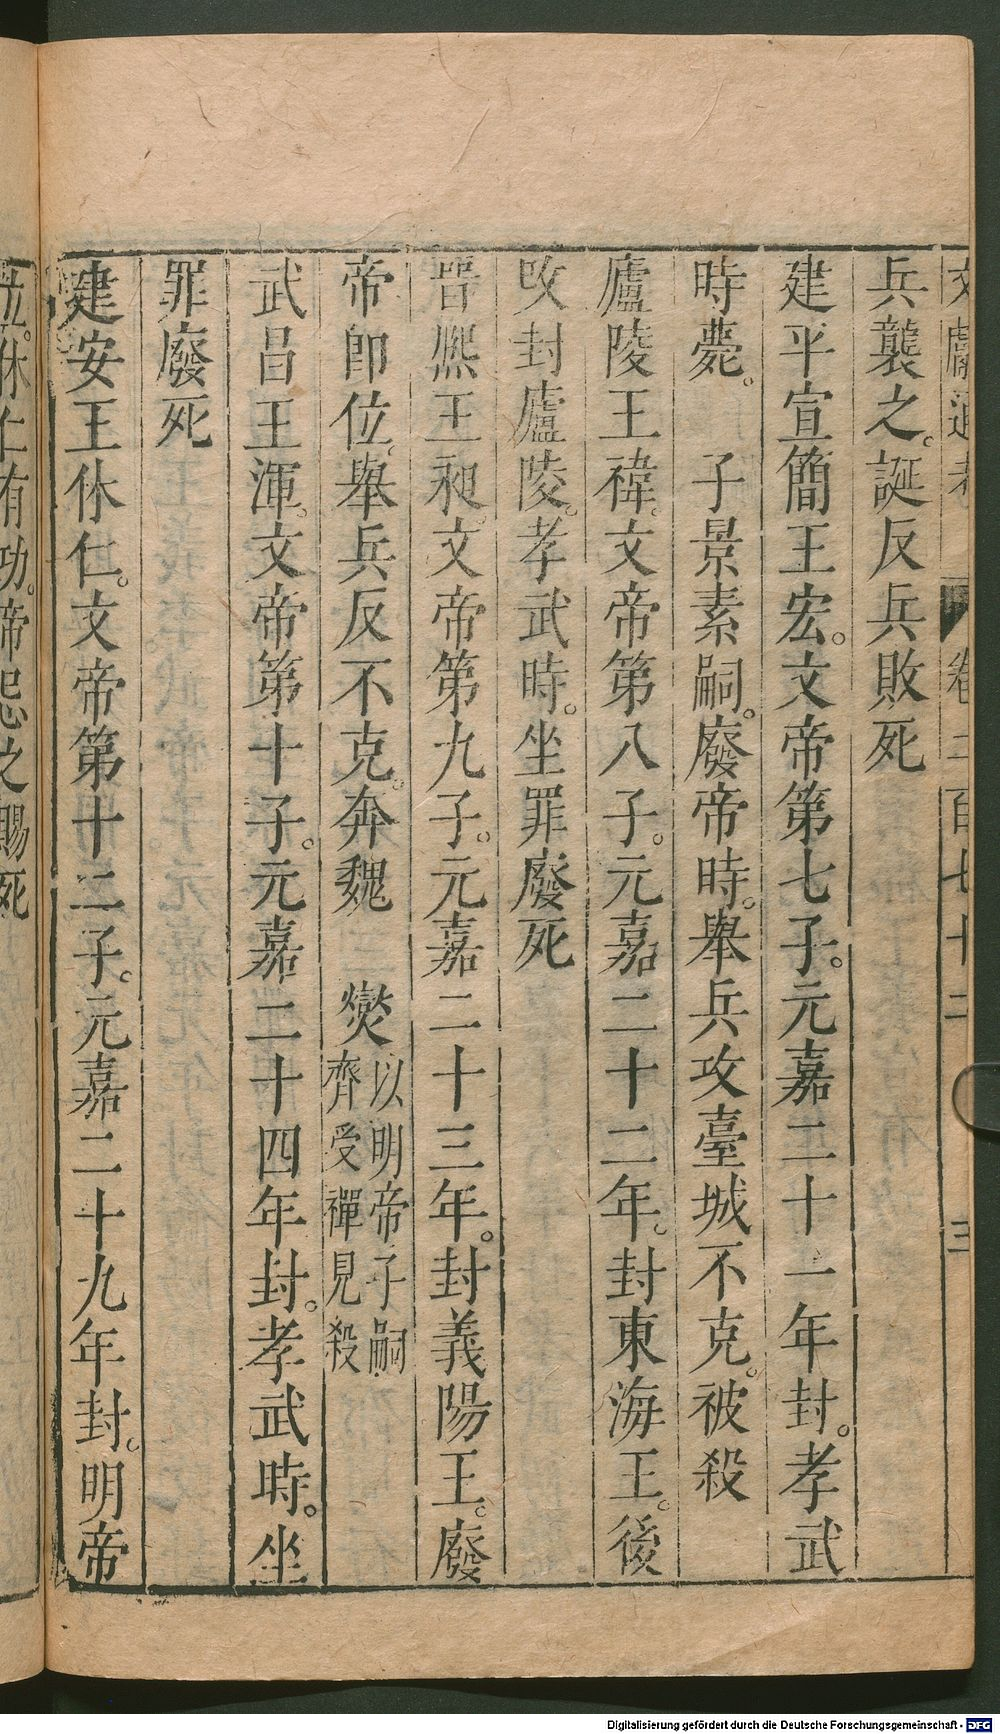 文獻通考 卷二百七十二 三
兵襲之。誕反兵敗死
建平宣簡王宏。文帝第七子。元嘉二十一年封。孝武
時薨。 子景素嗣。廢帝時。舉兵攻臺城不克。被殺
廬陵王禕。文帝第八子。元嘉二十二年。封東海王。後
改封廬陵。孝武時。坐罪廢死
晉熙王昶。文帝第九子。元嘉二十三年。封義陽王。廢
帝即位。舉兵反不克。奔魏 燮以明帝子嗣齊受禪見殺
武昌王渾。文帝第十子。元嘉二十四年封。孝武時。坐
罪廢死
建安王休仁。文帝第十二子。元嘉二十九年封。明帝
立。休仁有功。帝忌之賜死
Digitalisierung gefördert durch die Deutsche Forschungsgemeinschaft - DFG